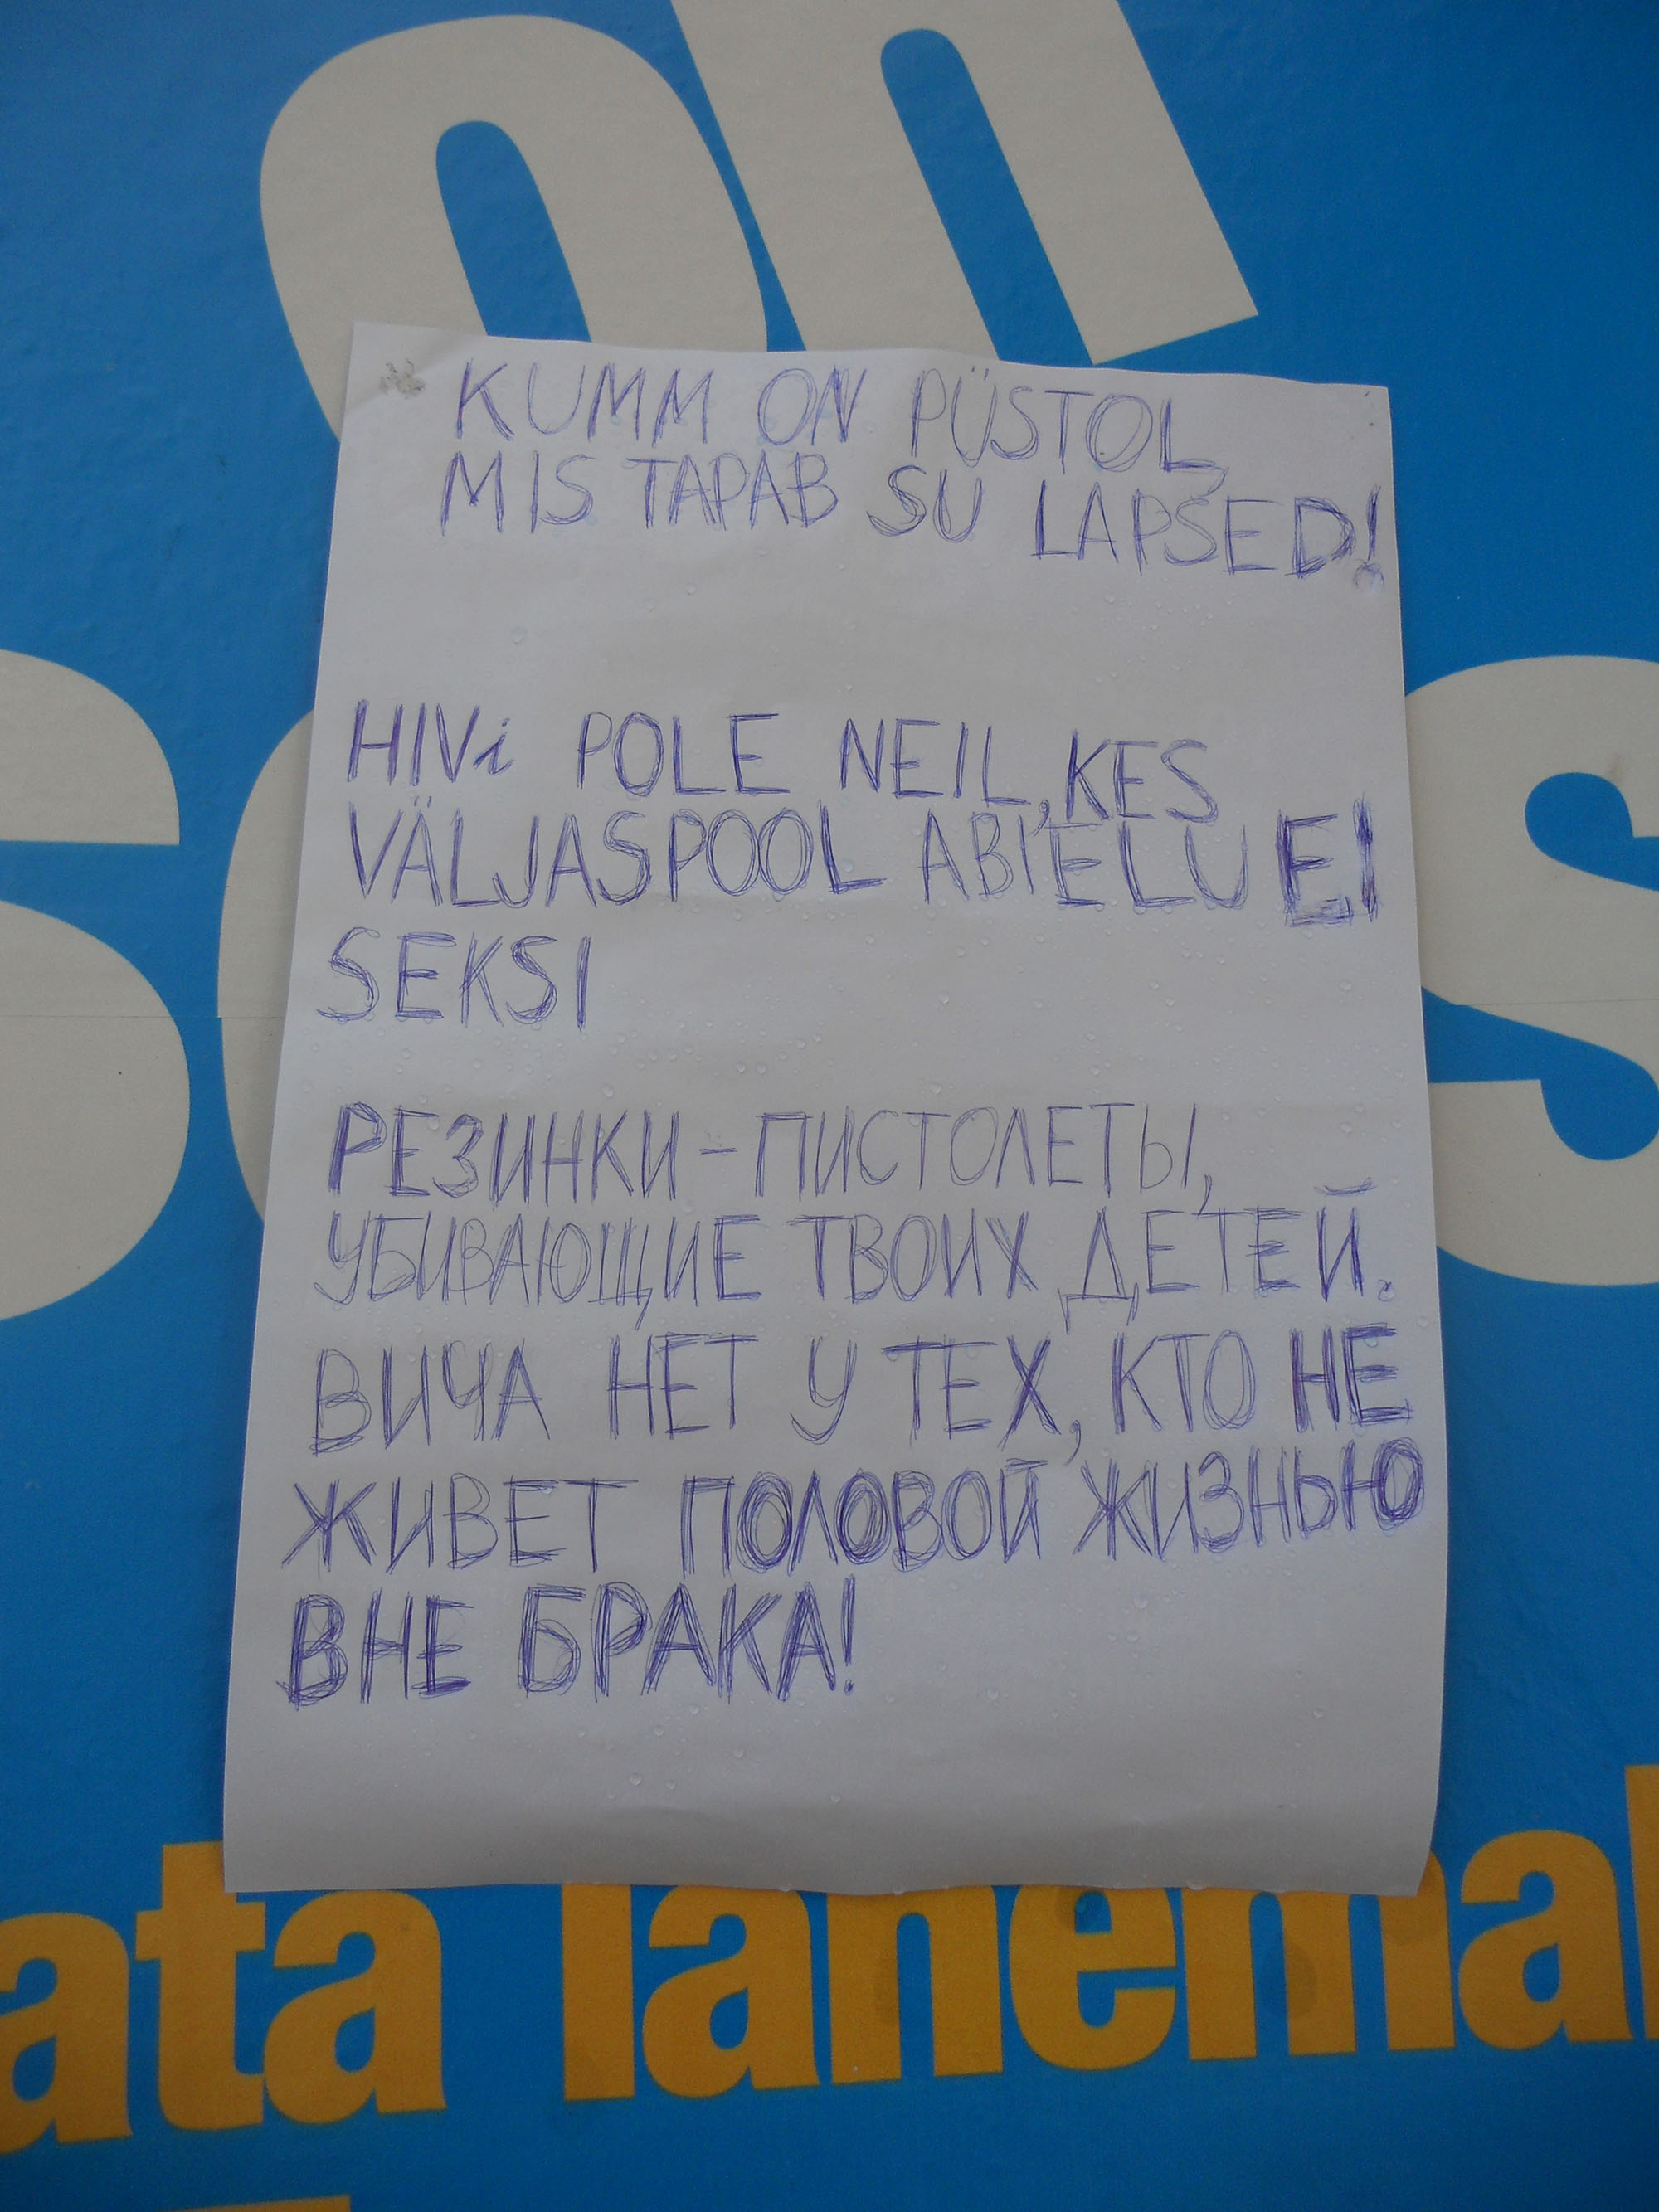 on
KUMM ON PÜSTOL,
MIS TAPAB SU LAPSED!
HIVi POLE NEIL, KES
VÄLJASPOOL ABIELU EI
SEKSI
РЕЗИНКИ - ПИСТОЛЕТЫ,
УБИВАЮЩИЕ ТВОИХ ДЕТЕЙ.
ВИЧА НЕТ У ТЕХ, КТО НЕ
ЖИВЕТ ПОЛОВОЙ ЖИЗНЬЮ
ВНЕ БРАКА!